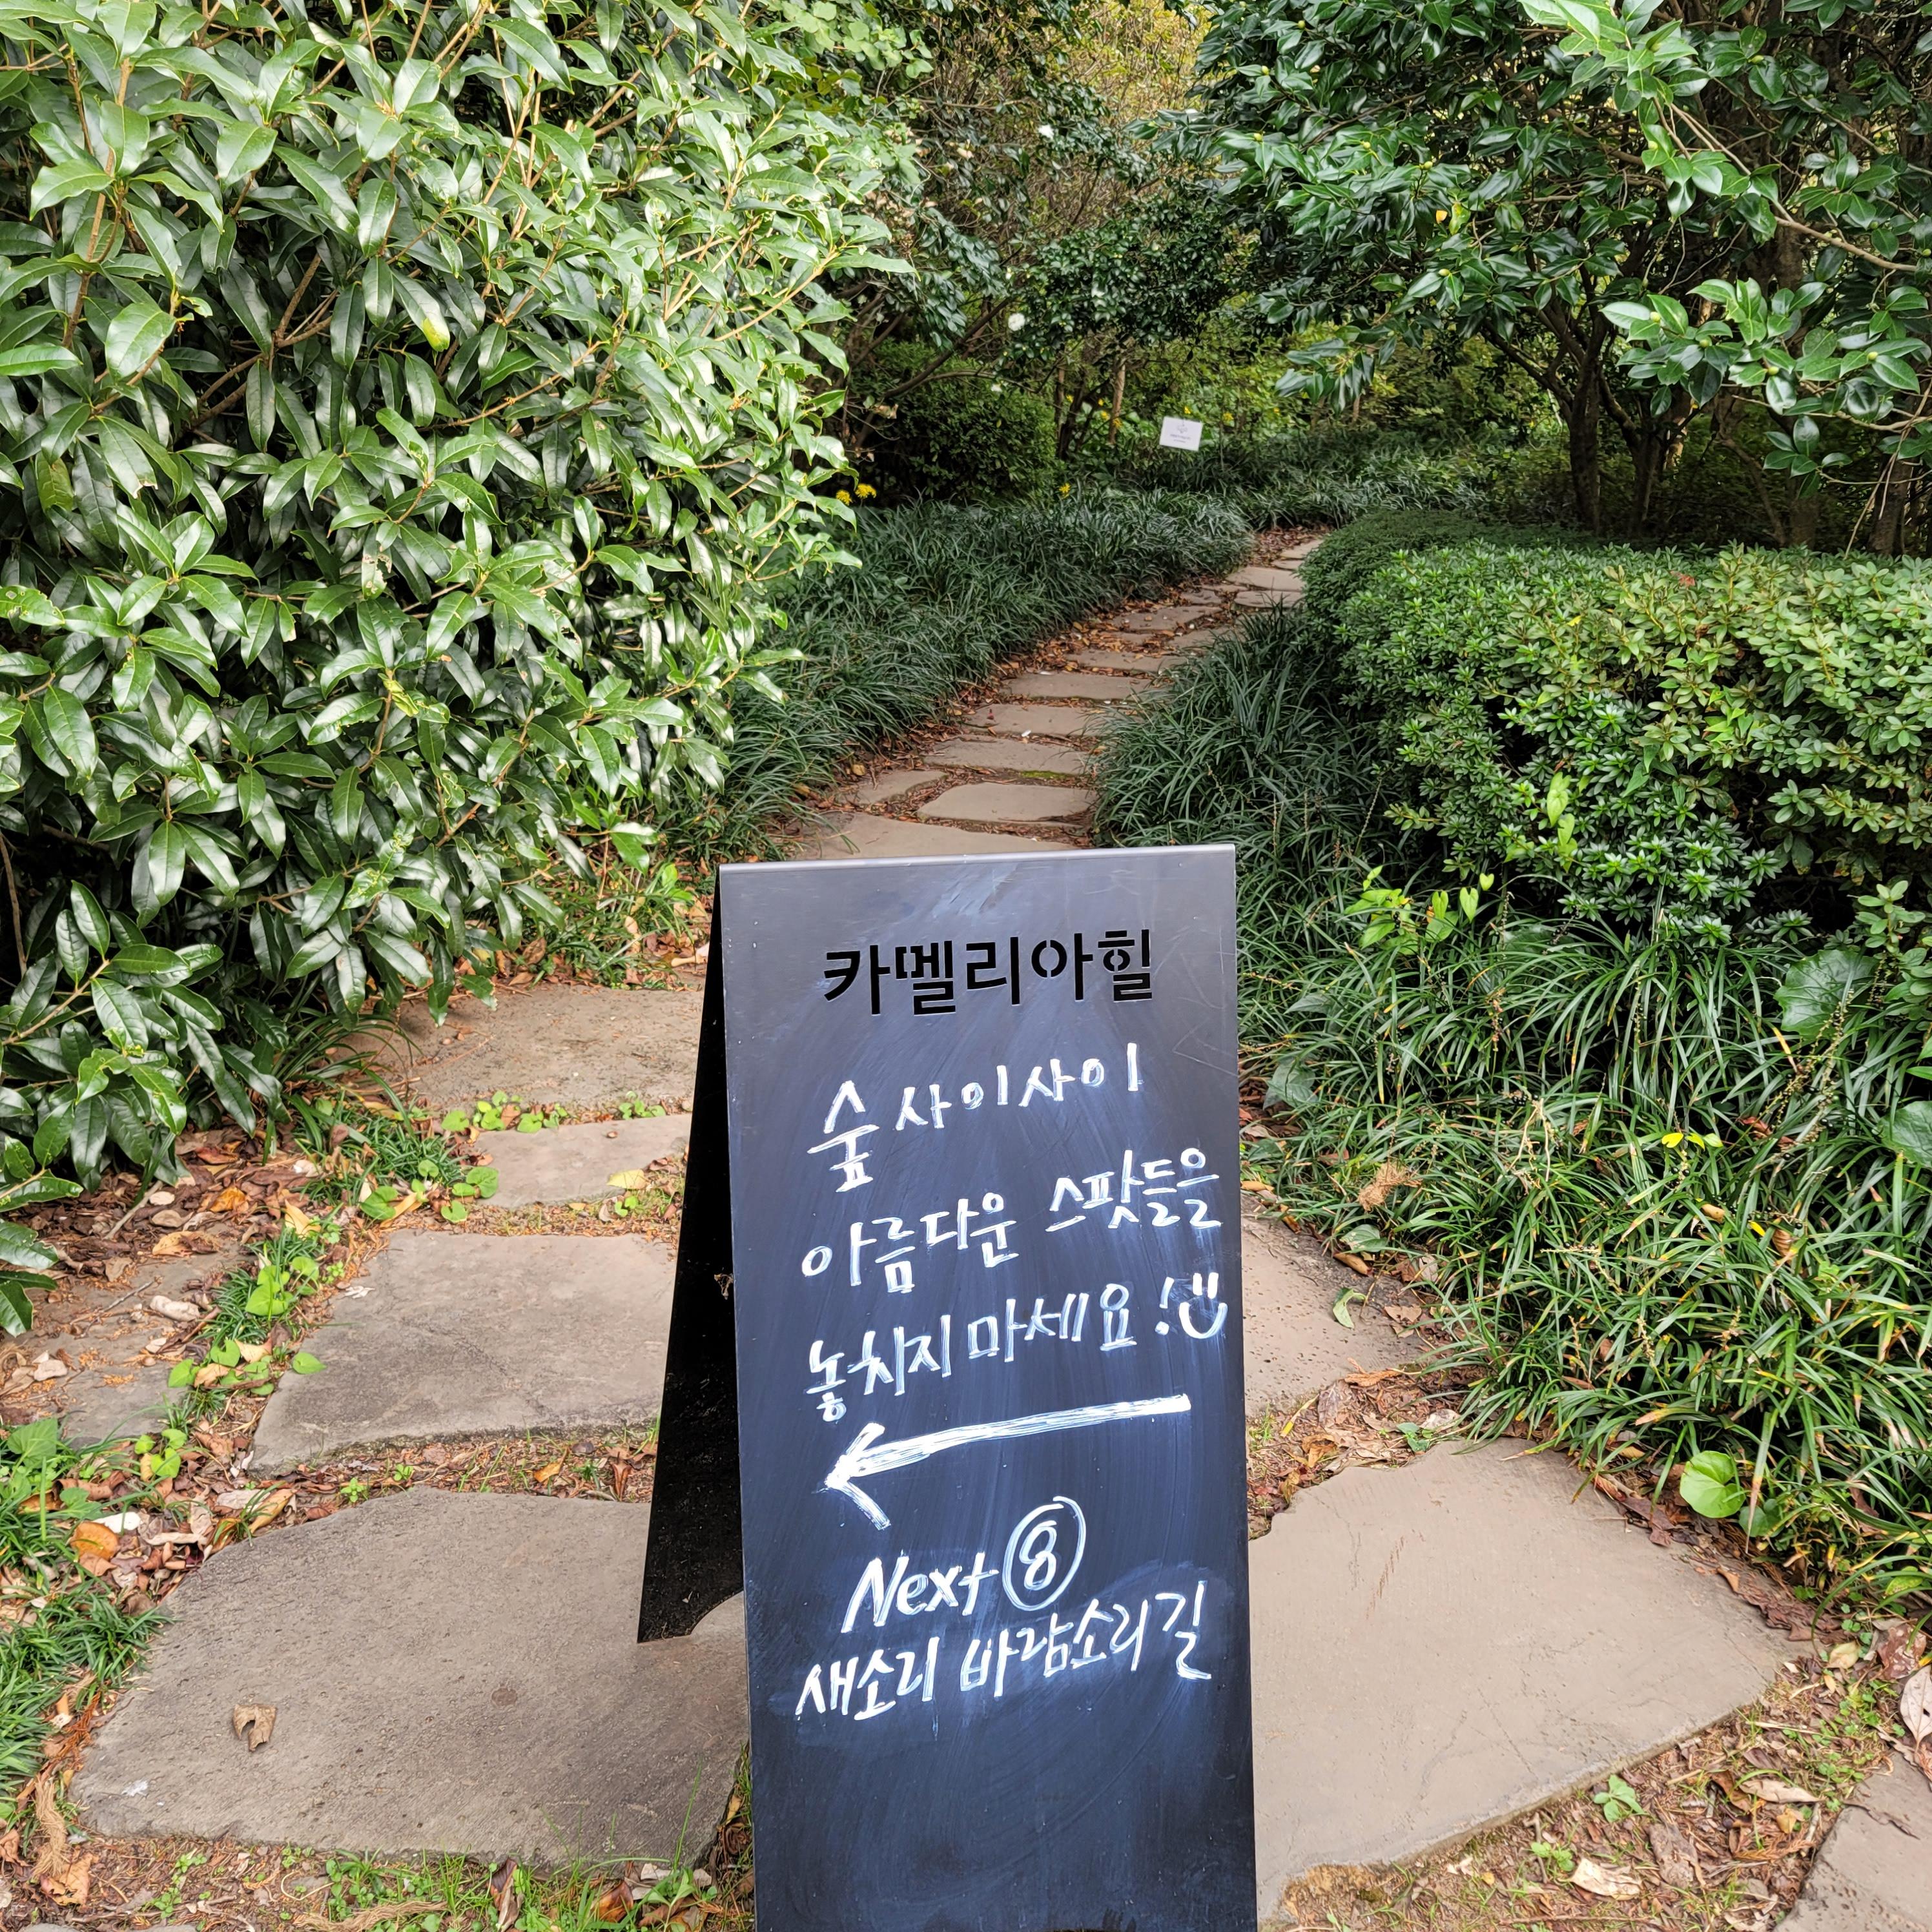 카멜리아힐
숲 사이사이
아름다운 스팟들을
놓치지 마세요!
Next ⑧
새소리 바람소리길